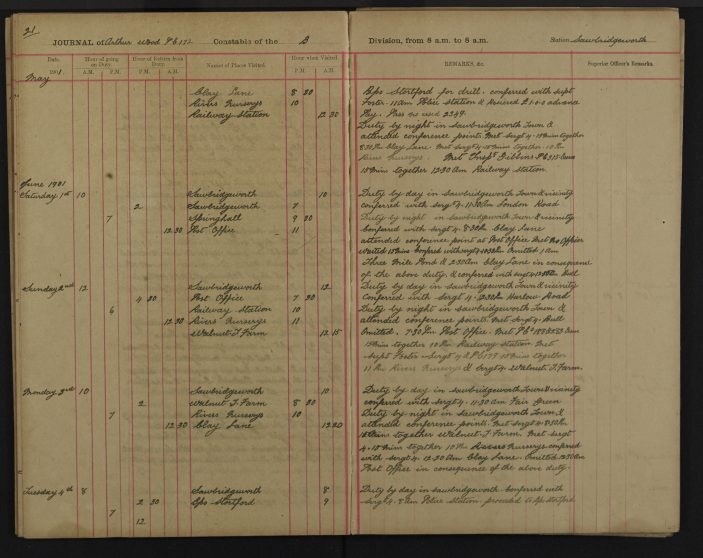 21
JOURNAL of Arthur Wood Pc 172 Constable of the B
Date. Hour of going on Duty. Hour of Return from Duty. Names of Places Visited. Hour when Visited.
1901. A.M. P.M. A.M. P.M. P.M. A.M.
May
Clay Lane 8 30
Rivers Nurserys 10
Railway Station 12 30
June 1901
Saturday 1st 10 Sawbridgeworth 10
2 Sawbridgeworth 7
7 Springhall 9 20
12 30 Post Office 11
Sunday 2nd 12 Sawbridgeworth 12
4 20 Post Office 7 30
6 Railway Station 10
12 30 Rivers Nurserys 11
Walnut T. Farm 12 15
Monday 3rd 10 Sawbridgeworth 10
2 Walnut T. Farm 8 30
7 Rivers Nurserys 10
12 30 Clay Lane 12 20
Tuesday 4th 8 Sawbridgeworth 8
2 30 Bps Stortford 9
7
12
Division, from 8 a.m. to 8 a.m. Station Sawbridgeworth
REMARKS, &c. Superior Officer's Remarks.
Bps Stortford for drill. conferred with Supt
Foster. 11 am Police Station & Received £1.0.0 advance
Pay. Pass No used 2349.
Duty by night in Sawbridgeworth Town &
attended conference points. Met Sergt 4. 15 min together
8.30 Pm Clay Lane. Met Sergt 4 15 min together. 10 Pm
Rivers Nurserys. Met Inspr Gibbins
15 min together 12.30 am Railway Station
Duty by day in Sawbridgeworth Town & vicinity
conferred with Sergt 4. 11.30 am London Road
Duty by night in Sawbridgeworth Town & vicinity
Confered with Sergt 4. 8.30 Pm Clay Lane
attended conference point at Post Office Met No Officer
waited 15 min Confered with Sergt 4 Omitted 1 am
Three Mile Pond & 2.30 am Clay Lane in consequence
of the above duty. & confered with Sergt 4
Duty by day in Sawbridgeworth Town & vicinity
Conferred with Sergt 4. Harlow Road
Duty by night in Sawbridgeworth Town &
attended conference points. Met Sergt 4.
Omitted. 7.30 Pm Post Office. Met Pc
15 min together 10 Pm Railway Station Met
Supt Foster & Sergt 4 & Pc 179 15 min together
11 Pm Rivers Nurserys & Sergt 4 Walnut T. Farm.
Duty by day in Sawbridgeworth Town & vicinity
confered with Sergt 4. 11.30 am Fair Green
Duty by night in Sawbridgeworth Town &
attended conference points. Met Sergt 4. 8.30 Pm
15 min together Walnut T. Farm. Met Sergt
4. 15 min together 10 Pm Rivers Nurserys confered
with Sergt 4. 12.20 am Clay Lane. Omitted 12.30 am
Post Office in consequence of the above duty.
Duty by day in Sawbridgeworth. Conferred with
Sergt 4. 8 am Police Station. proceeded to Bps Stortford